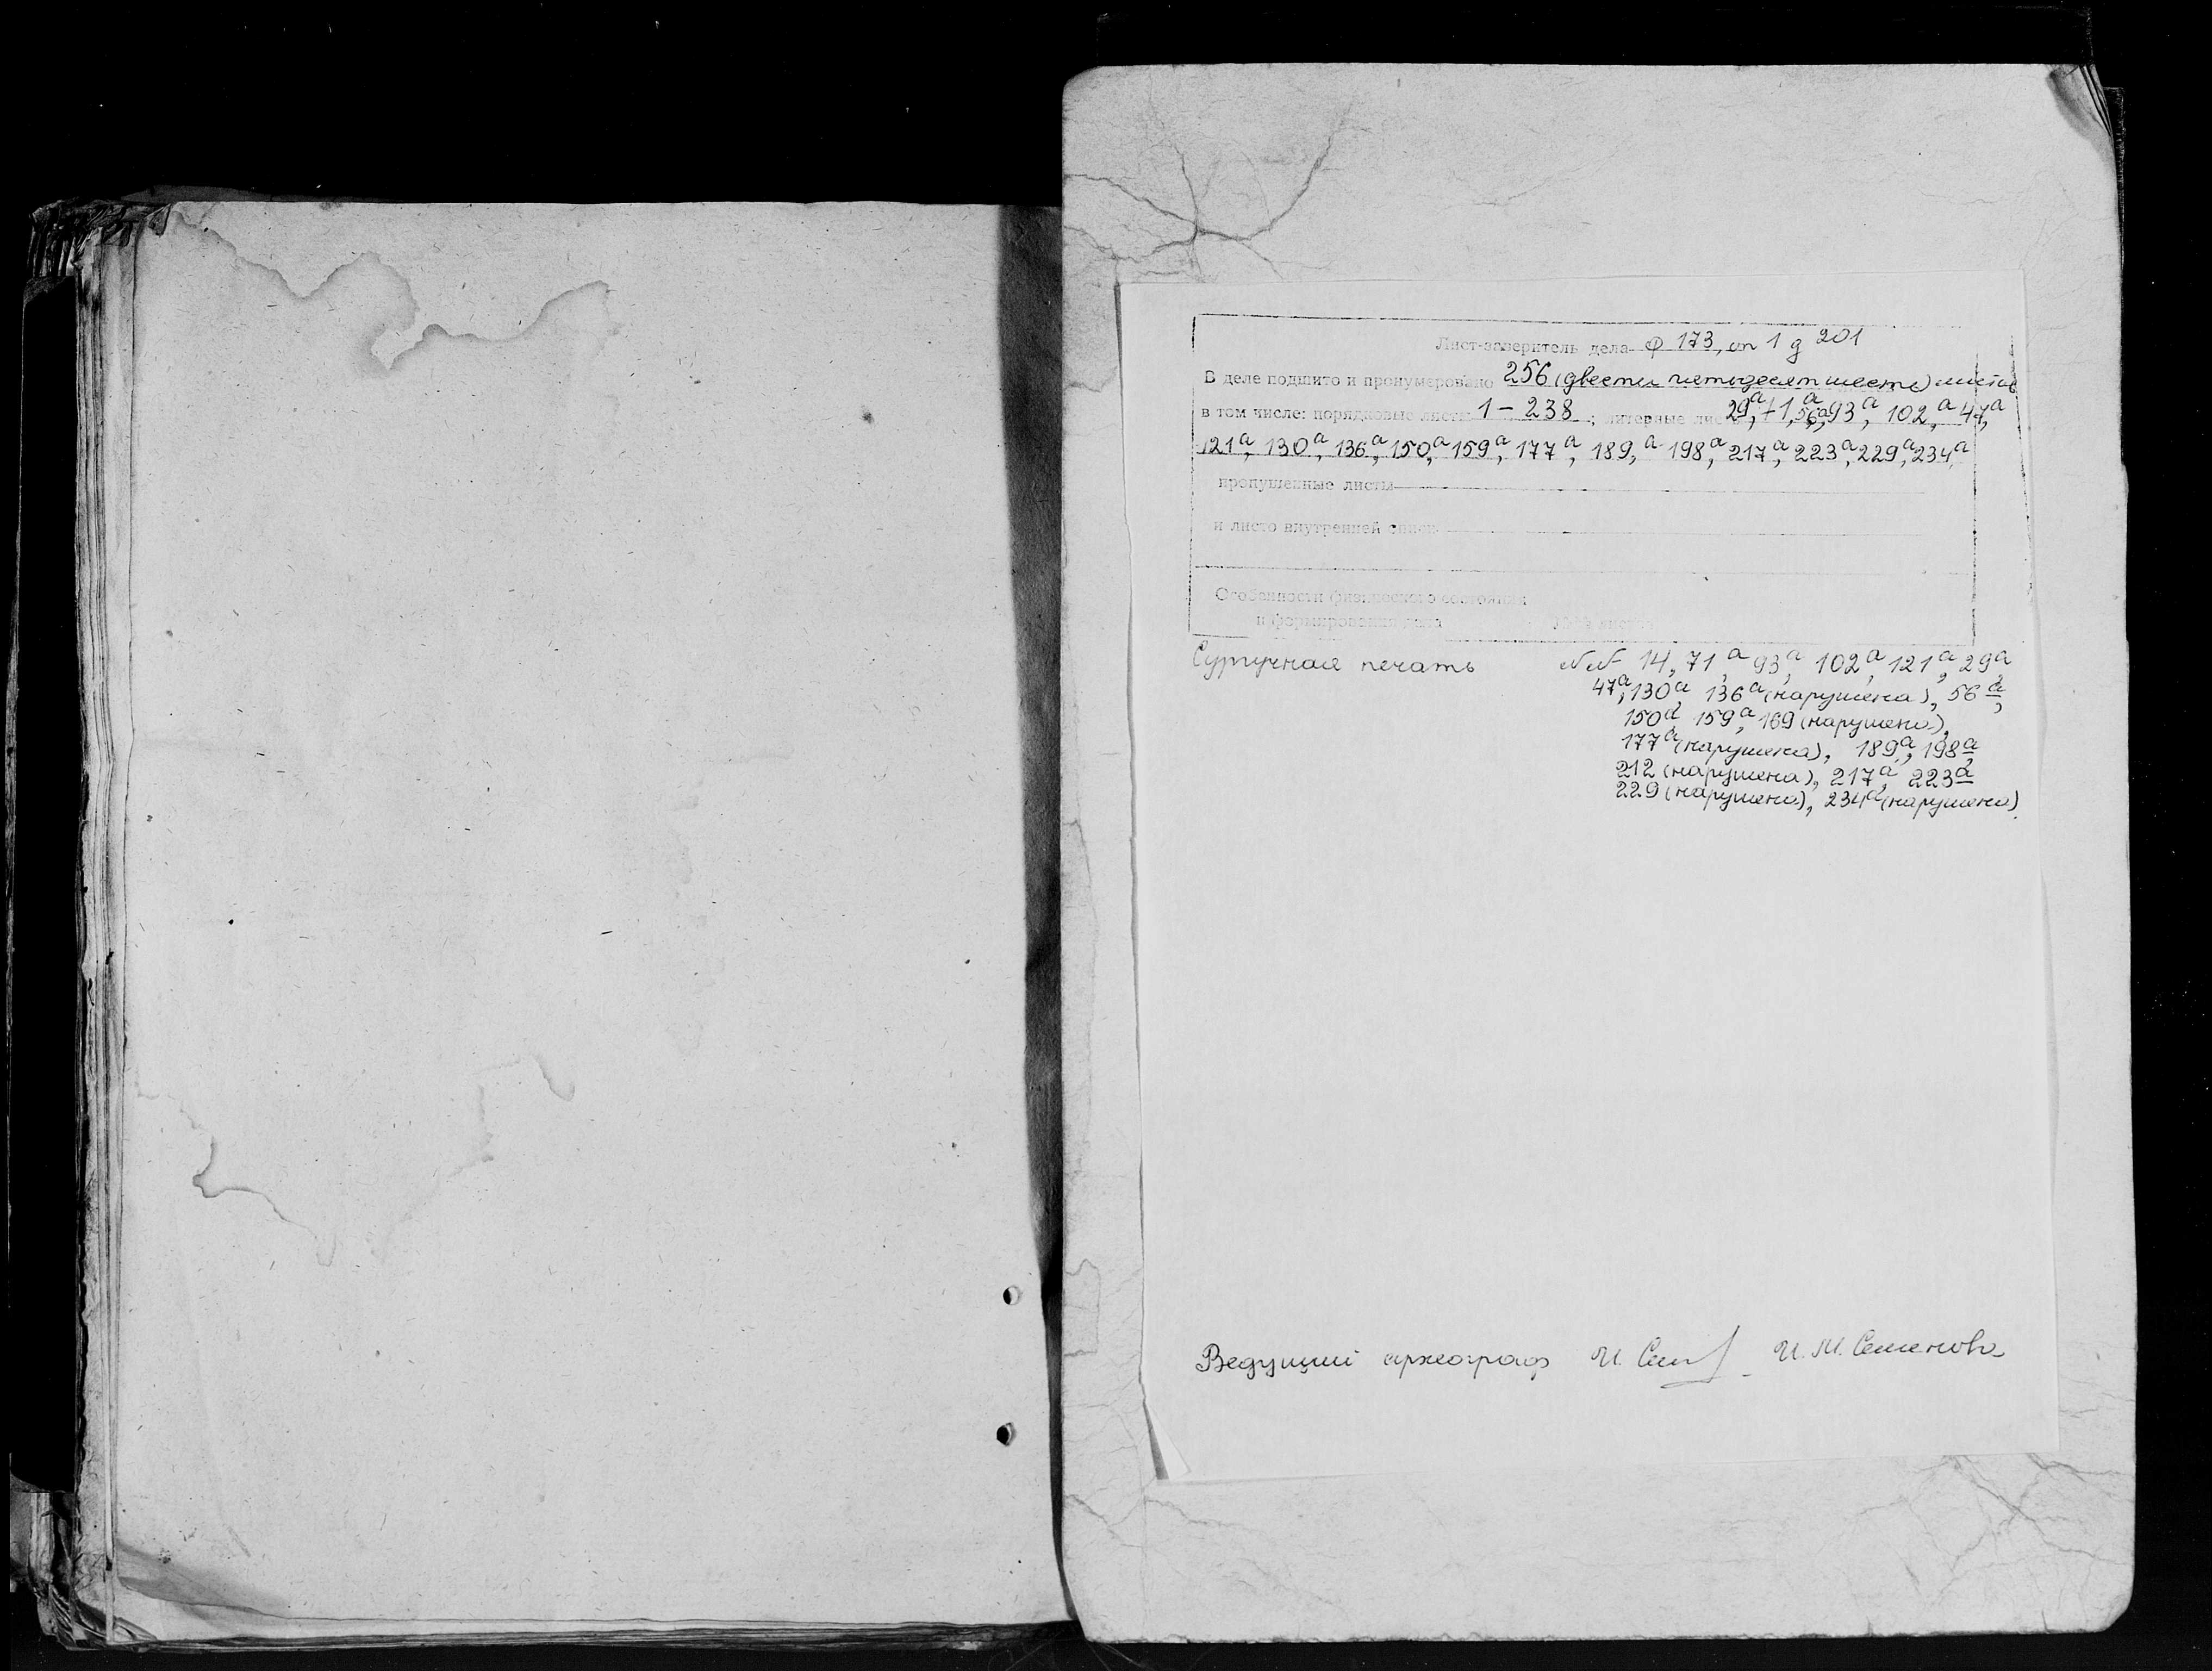 Лист-заверитель дела Ф 173, оп 1 д 201
В деле подшито и пронумеровано 256 (двести пятьдесят шесть) листов
в том числе: порядковые листы 1 – 238 ; литерные листы 29а, 71а, 56а, 93а, 102а, 47а,
121а, 130а, 136а, 150а, 159а, 177а, 189а, 198а, 217а, 223а, 229а, 234а
пропущенные листы
и листо внутренней описи
Особенности физического состояния
и формирования дела
Сургучная печать №№ 14, 71а, 93а, 102а, 121а, 29а,
47а, 130а, 136а (нарушена), 56а,
150а, 159а, 169 (нарушена),
177а (нарушена), 189а, 198а,
212 (нарушена), 217а, 223а
229 (нарушена), 234а (нарушена).
Ведущий археограф И. М. Семенова